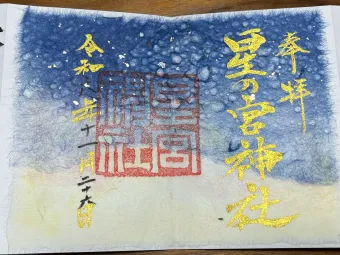 奉拝
星の宮神社
星宮神社
令和八年十一月二十六日